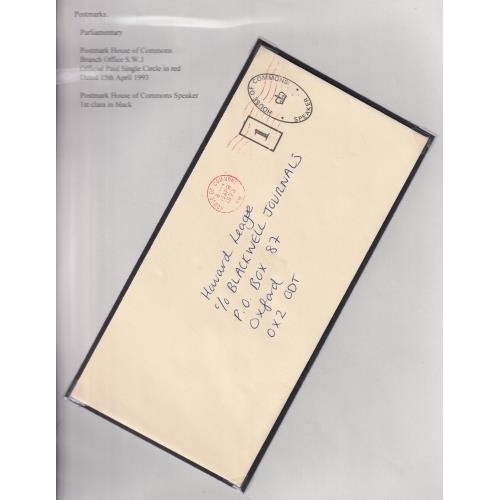 Postmarks.
Parliamentary
Postmark House of Commons
Branch Office S.W.1
Official Paid Single Circle in red
Dated 15th April 1993
Postmark House of Commons Speaker
1st class in black
HOUSE OF COMMONS
SPEAKER
1
HOUSE OF COMMONS
Howard League
c/o BLACKWELL JOURNALS
P.O. BOX 87
Oxford
OX2 0DT